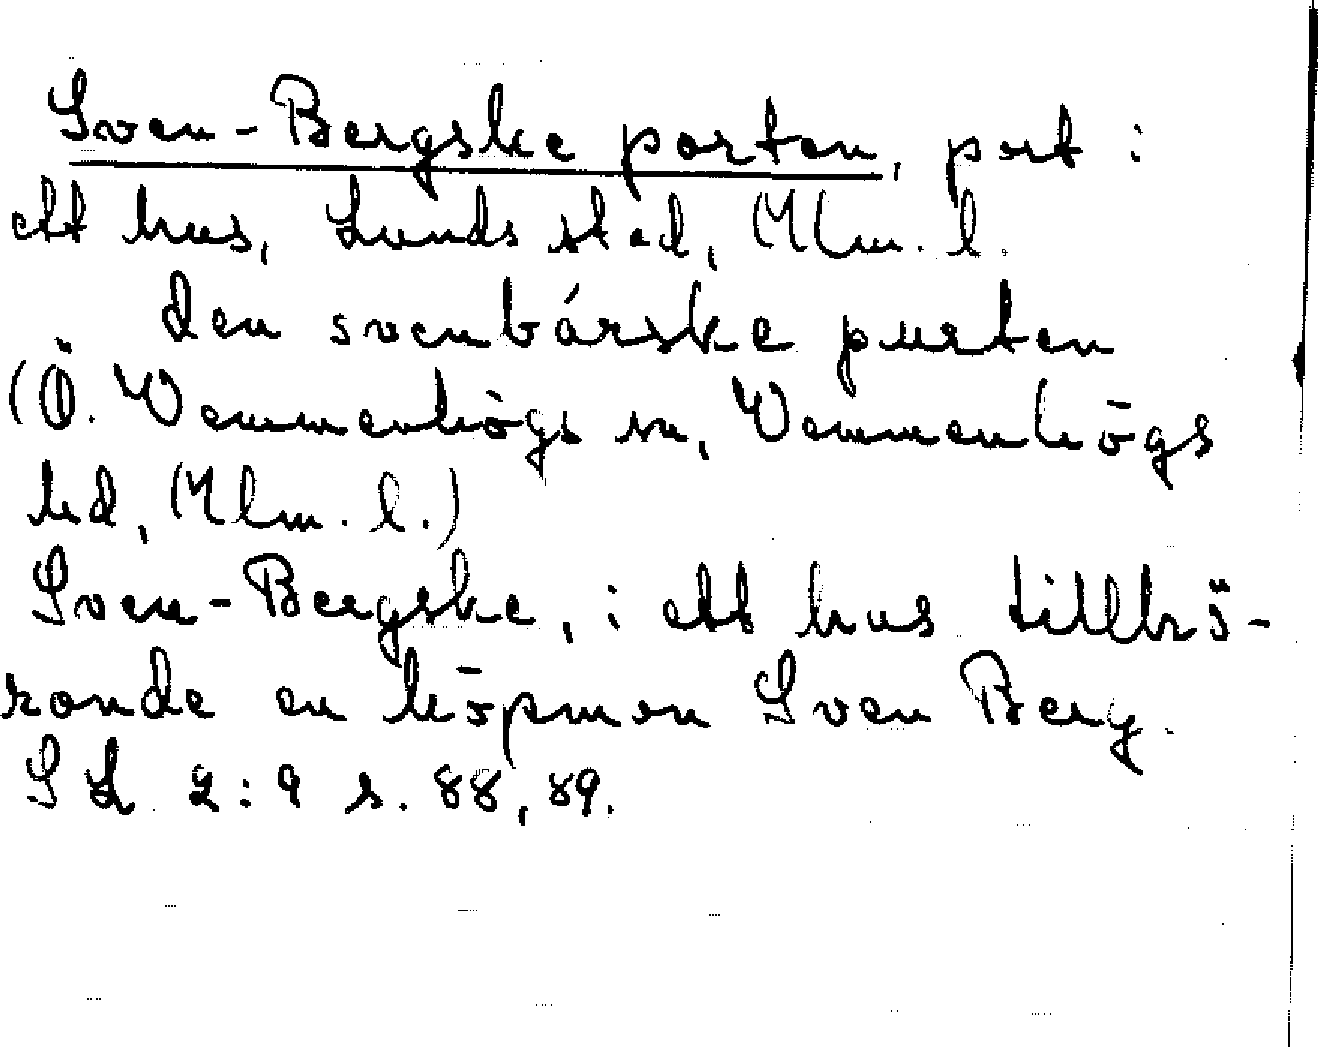 Sven-Bergske porten, port i
ett hus, Lunds stad, Mlm. l.
den svenbárske purten
(Ö. Vemmenhögs sn, Vemmenhögs
hd, Mlm. l.)
Sven-Bergske, i ett hus tillhö-
rande en köpman Sven Berg.
SL 2:9 s. 88, 89.